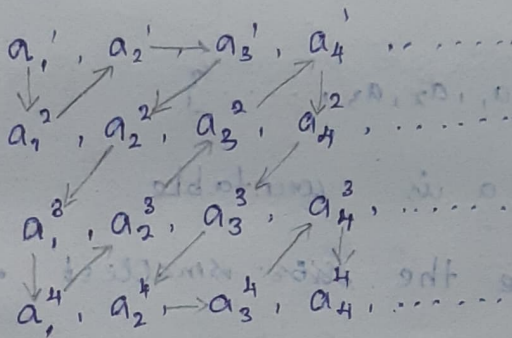 a₁¹, a₂¹ → a₃¹, a₄¹ ..........
a₁², a₂², a₃², a₄², ..........
a₁³, a₂³, a₃³, a₄³, ..........
a₁⁴, a₂⁴ → a₃⁴, a₄⁴, ..........